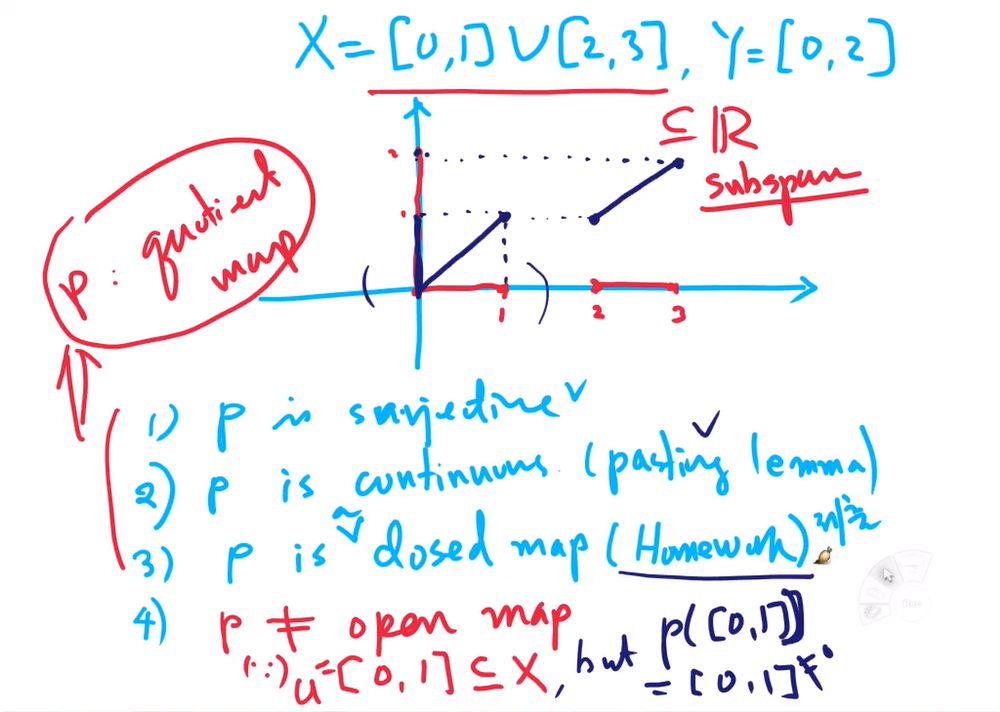 X = [0,1] ∪ [2,3], Y = [0,2]
⊆ ℝ
subspace
p : quotient
map
1 2 3
1) p is surjective ✓
2) p is continuous. (pasting lemma) ✓
3) p is closed map (Homework)
4) p ≠ open map
(∵) u = [0,1] ⊆ X, but p([0,1])
= [0,1] ≠